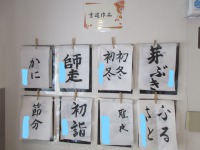 書道作品
かに
師走
初冬
初冬
芽ぶき
節分
初詣
ふる
さと